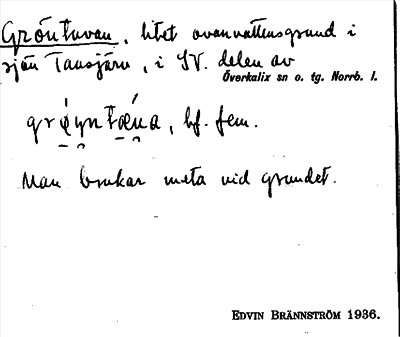 Gröntuvan, litet ovanvattensgrund i
sjön Tansjärv, i SV. delen av
Överkalix sn o. tg. Norrb. l.
bf. fem.
Man brukar meta vid grundet.
EDVIN BRÄNNSTRÖM 1936.